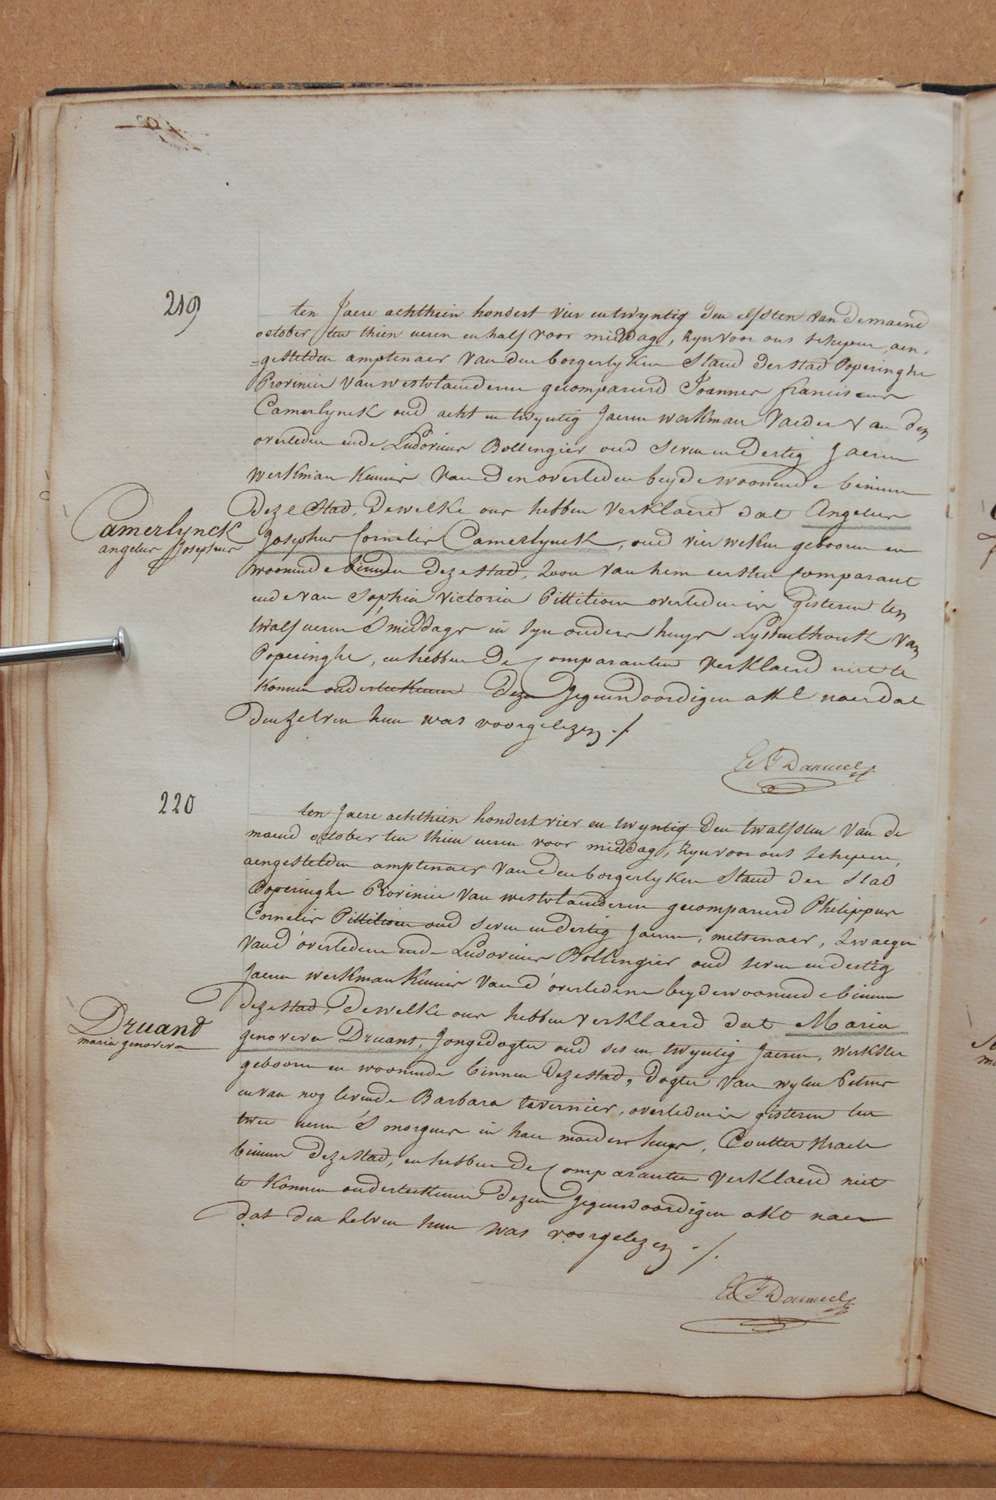 219
ten Jaere achthien hondert vier en twyntig den elfsten van de maend
october ten thien ueren en half voor middag, zyn voor ons schepen, aen-
gestelden amptenaer van den borgerlyken Stand der stad Poperinghe
Provincie van westvlaenderen gecompareerd Joannes franciscus
Camerlynck oud acht en twyntig Jaeren werkman Vaeder van den
overleden ende Ludovicus Bollengier oud seven en dertig Jaeren
werkman Kennis van den overleden beyde woonende binnen
deze Stad, Dewelke ons hebben verklaerd dat Angelus
Josephus Cornelis Camerlynck, oud vier weken geboren en
woonende binnen deze stad, Zoon van hem eersten Comparant
ende van Sophia Victoria Pittillioen overleden is gisteren ten
twalf ueren s' middags in syn ouders huys Lyssenthoek van
Poperinghe, en hebben de Comparanten verklaerd niet te
konnen onderteekenen dezen Jegenwoordigen akte naer dat
den zelven hun was voorgelezen ./.
Camerlynck
angelus Josephus
220
ten Jaere achthien hondert vier en twyntig Den twalfsten van de
maend october ten thien ueren voor middag, zyn voor ons schepen,
aengestelden amptenaer van den borgerlyken Stand der stad
Poperinghe Provincie van westvlaenderen gecompareerd Philippus
Cornelis Pittillioen oud seven en dertig Jaeren, metsenaer, Zwaeger
van d'overledene ende Ludovicus Bollengier oud seven en dertig
Jaeren werkman Kennis van d'overledene beyde woonende binnen
deze stad, Dewelke ons hebben verklaerd dat Maria
genoveva Druant, Jongedogter oud ses en twyntig Jaeren, werkster
geboren en woonende binnen deze stad, dogter van wylen Petrus
en van nog levende Barbara tavernier, overleden is gisteren ten
twee ueren s' morgens in haer moeders huys, Boutter straete
binnen deze stad, en hebben de Comparanten verklaerd niet
te konnen onderteekenen dezen Jegenwoordigen akte naer
dat den zelven hun was voorgelezen ./.
Druant
maria genoveva